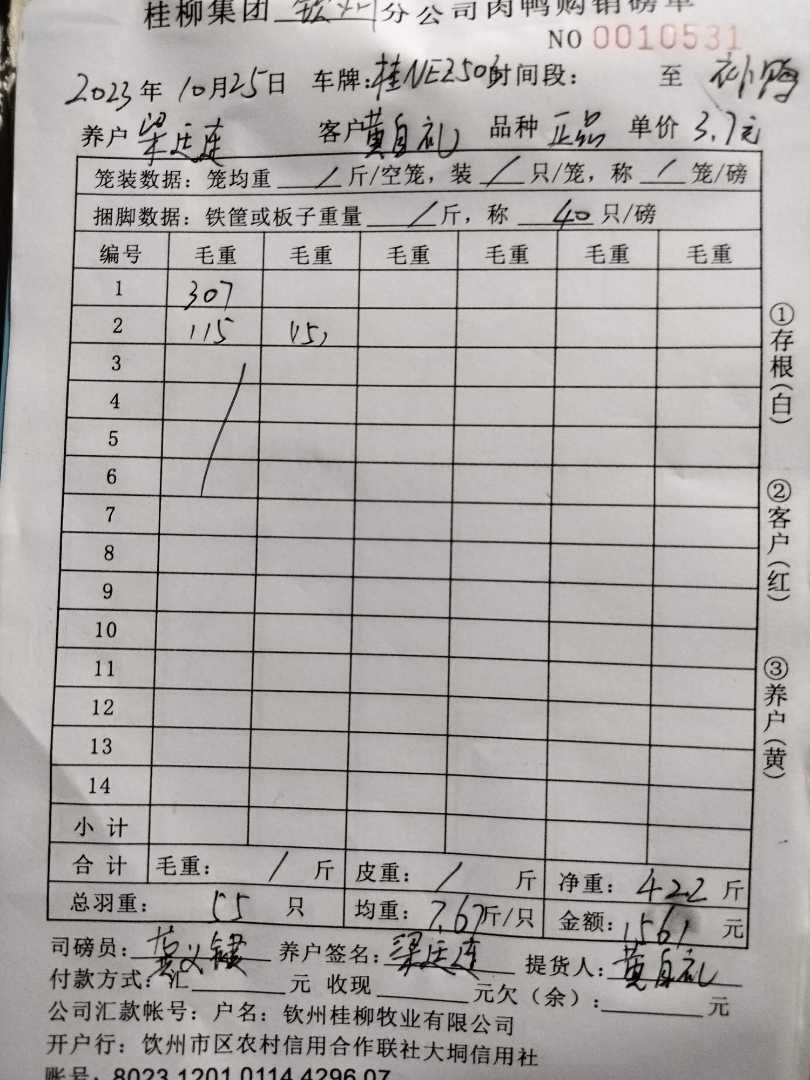 桂柳集团 钦州 分公司肉鸭购销磅单
NO 0010531
2023年 10月25日 车牌:桂NE2503 时间段: 至 补鸭
养户 梁廷连 客户 黄自礼 品种 正品 单价 3.7元
笼装数据: 笼均重 / 斤/空笼, 装 / 只/笼, 称 / 笼/磅
捆脚数据: 铁筐或板子重量 / 斤, 称 40 只/磅
编号 毛重 毛重 毛重 毛重 毛重 毛重
1 307
2 115 15,
3
4
5
6
7
8
9
10
11
12
13
14
小计
合计 毛重: / 斤 皮重: / 斤 净重: 422 斤
总羽重: 55 只 均重: 7.67斤/只 金额: 1561 元
司磅员: 黄 养户签名: 梁廷连 提货人: 黄自礼
付款方式: 汇 元 收现 元欠(余): 元
公司汇款帐号: 户名: 钦州桂柳牧业有限公司
开户行: 钦州市区农村信用合作联社大垌信用社
账号: 8023 1201 0114 4296 07
①存根(白)
②客户(红)
③养户(黄)